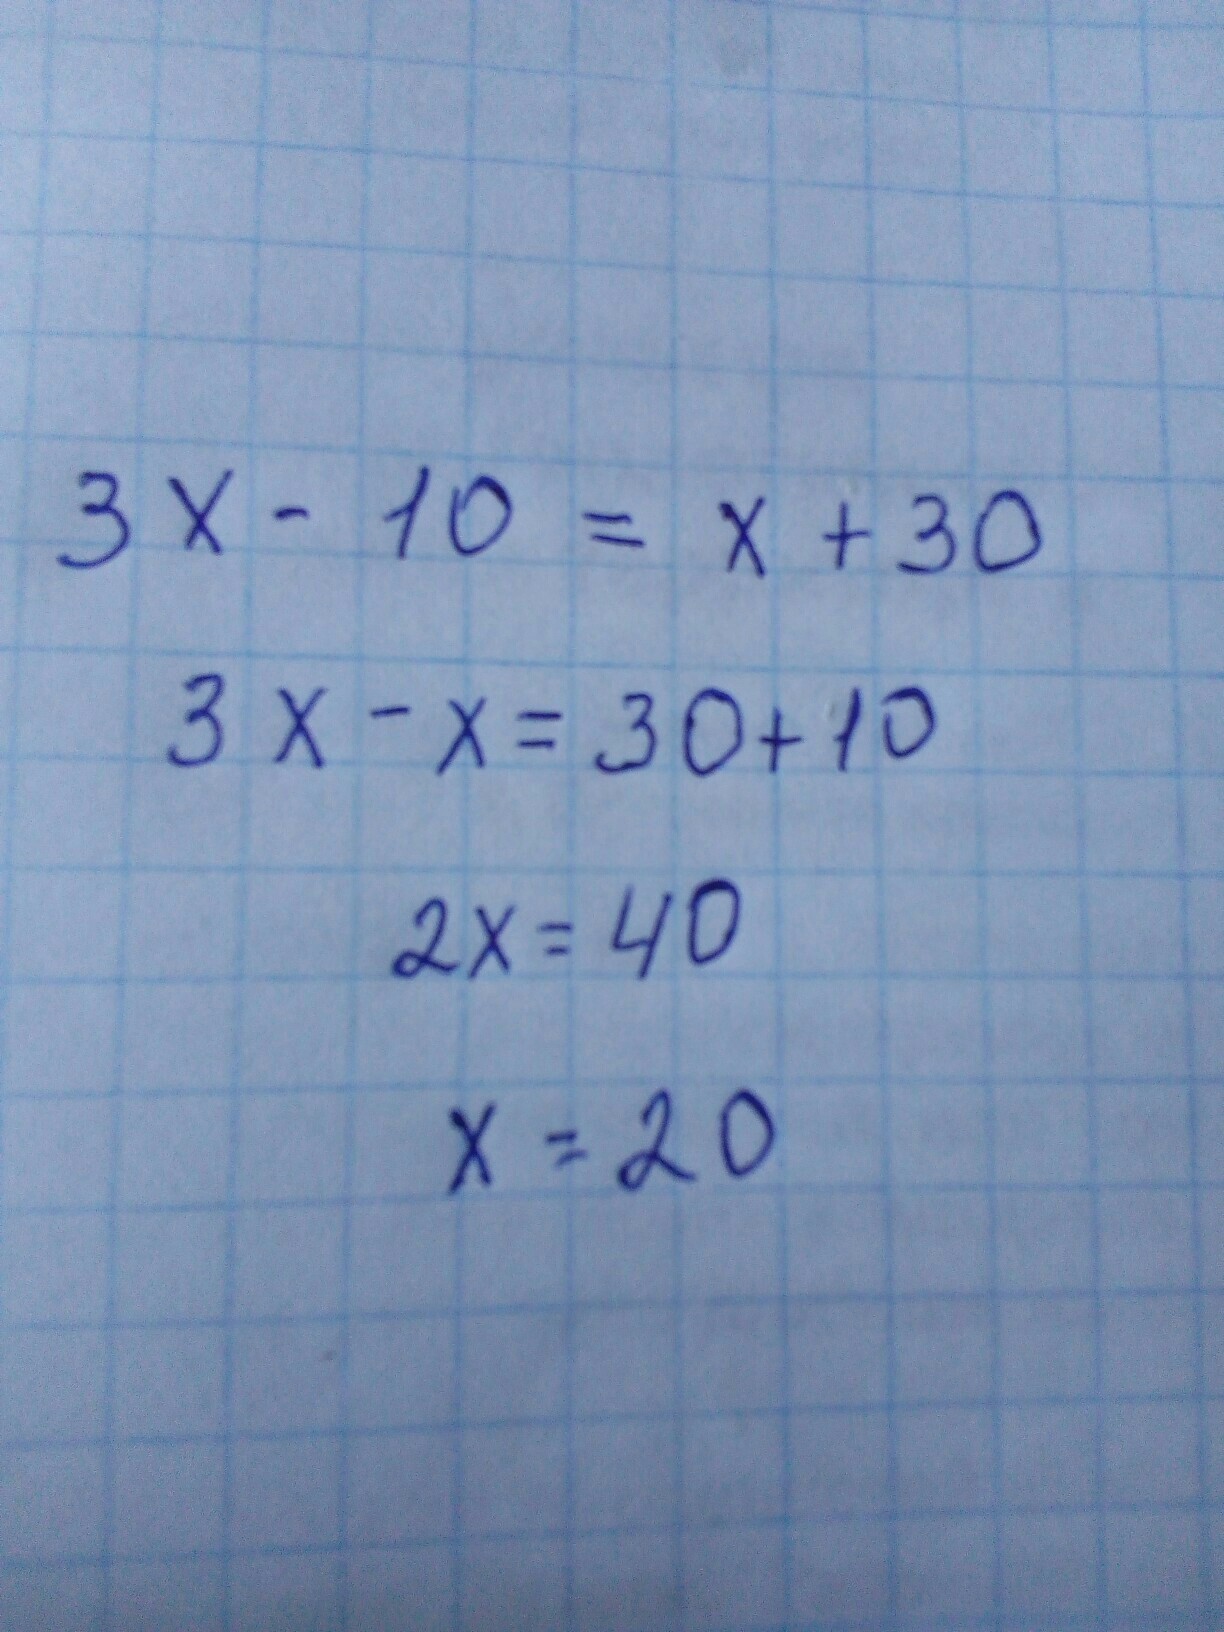 3x - 10 = x + 30
3x - x = 30 + 10
2x = 40
x = 20